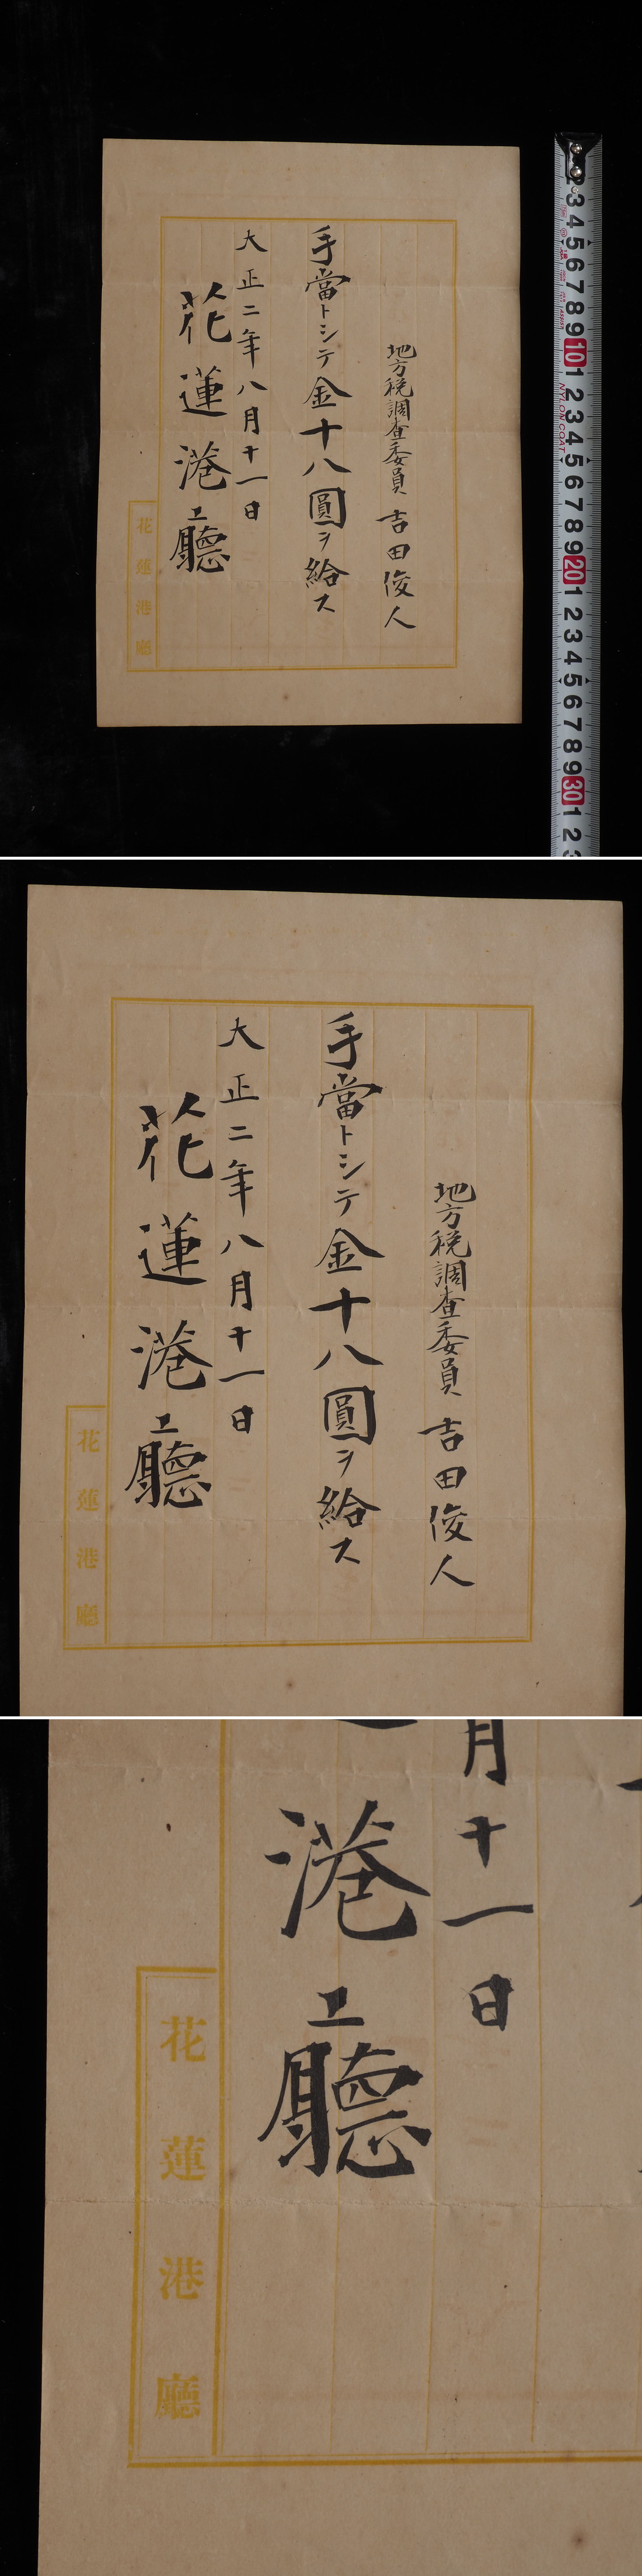 地方税調査委員 吉田俊人
手當トシテ金十八圓ヲ給ス
大正二年八月十一日
花蓮港廳
花蓮港廳
2 3 4 5 6 7 8 9 10 1 2 3 4 5 6 7 8 9 20 1 2 3 4 5 6 7 8 9 30 1 2
NYLON COAT
地方税調査委員 吉田俊人
手當トシテ金十八圓ヲ給ス
大正二年八月十一日
花蓮港廳
花蓮港廳
月十一日
港廳
花蓮港廳